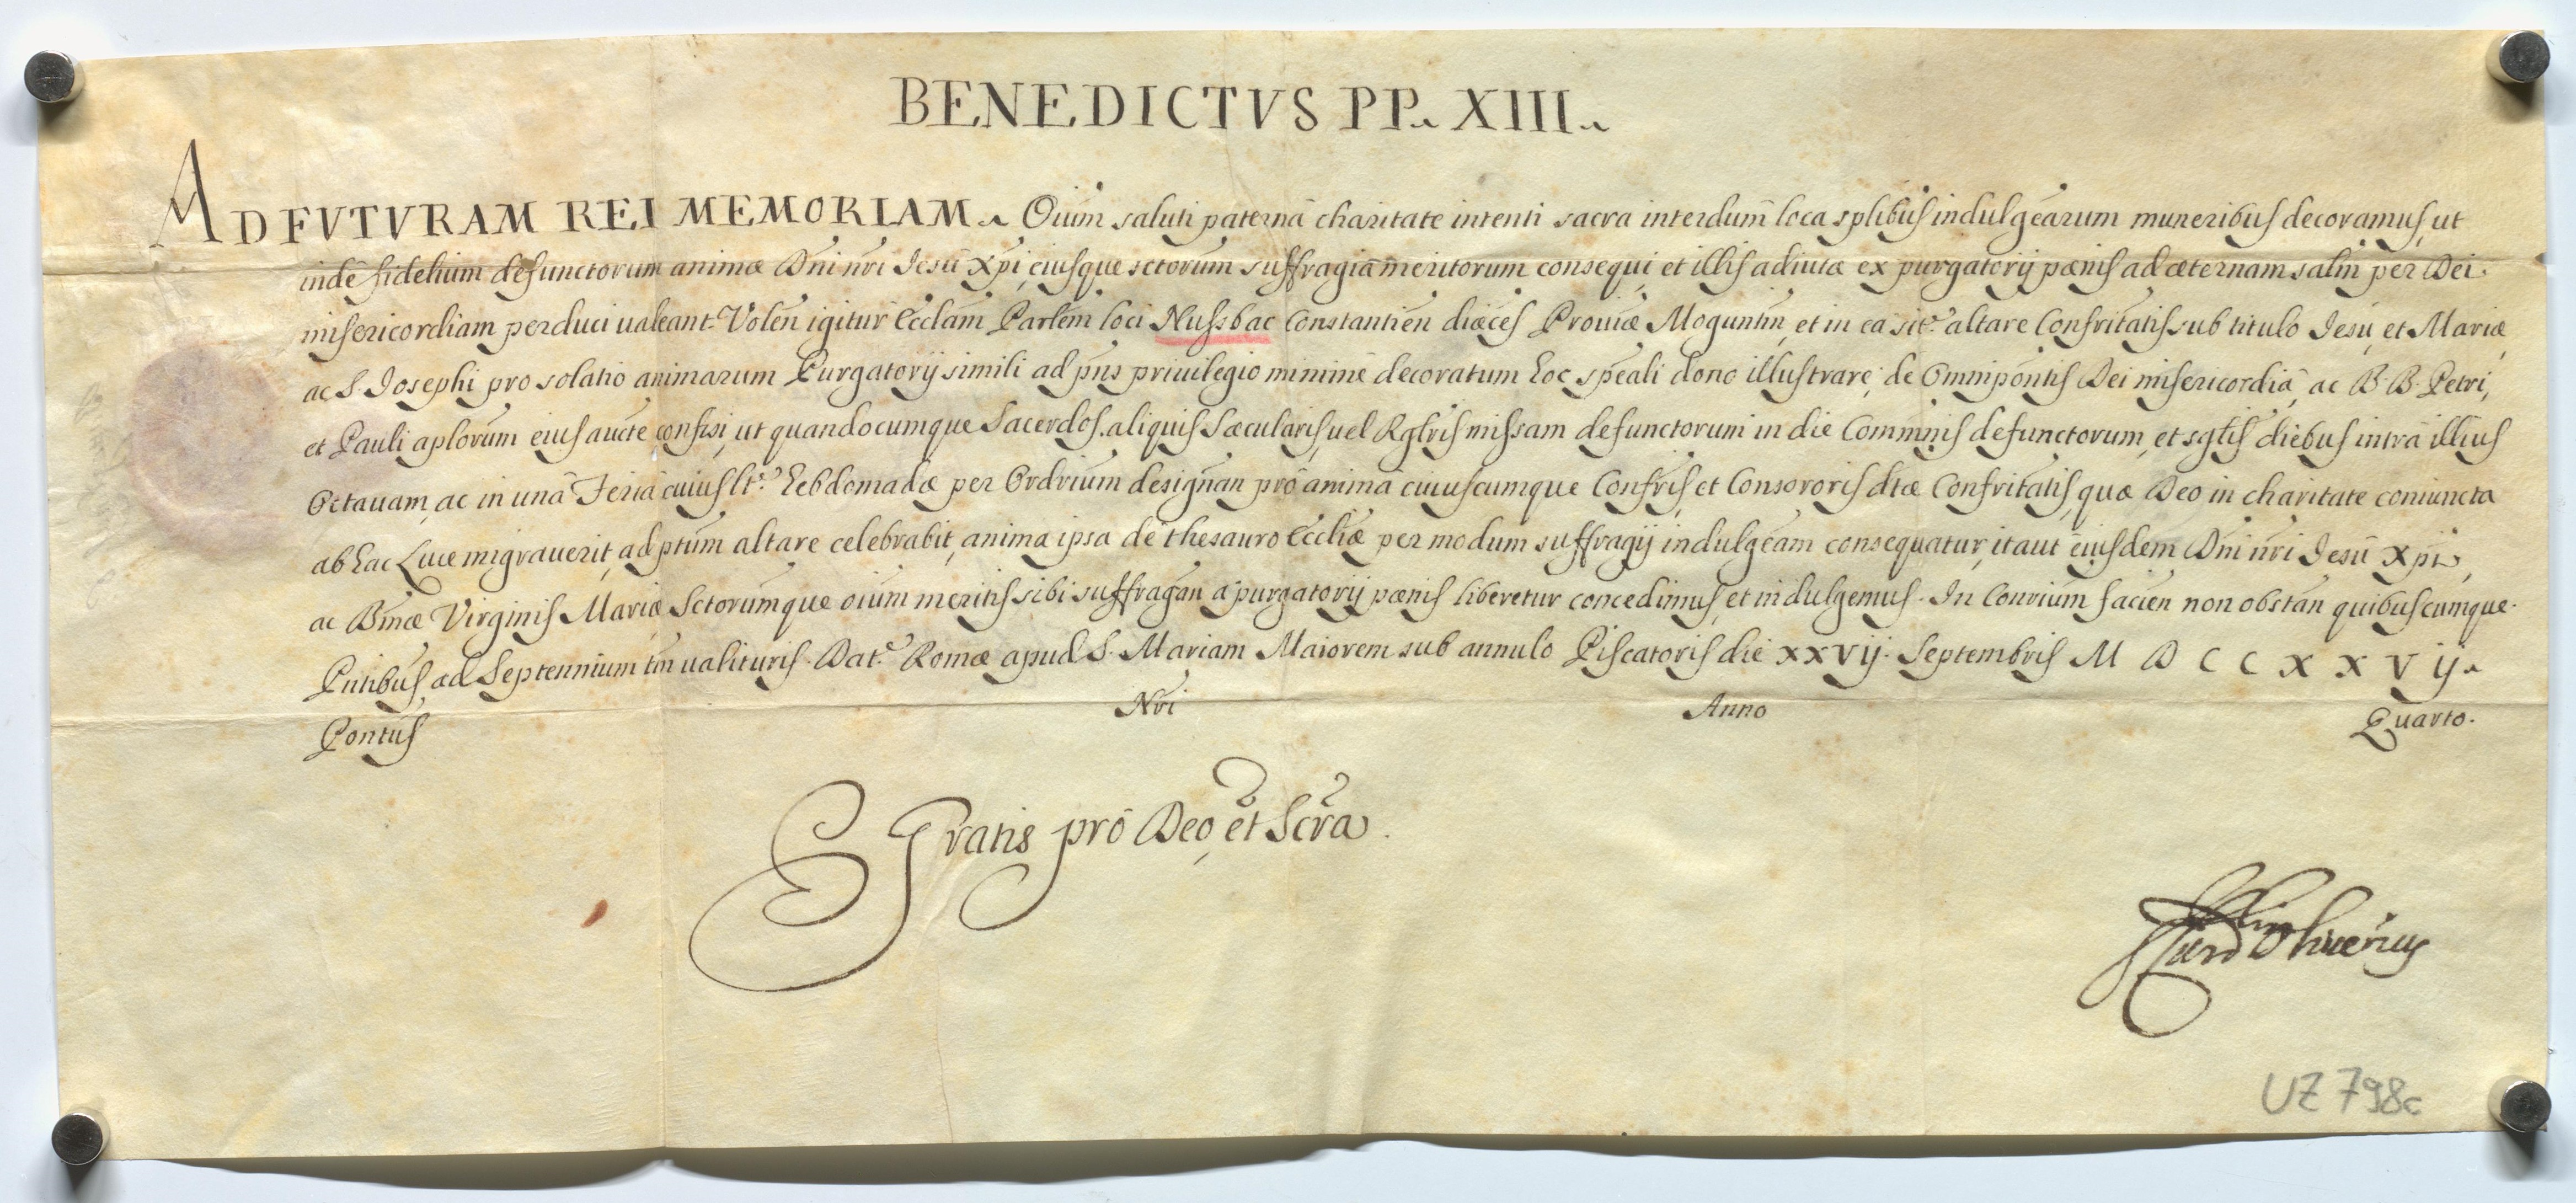 BENEDICTVS PP. XIII.
AD FVTVRAM REI MEMORIAM. Oium saluti paternâ charitate intenti sacra interdum loca splibus indulgearum muneribus decoramus, ut
inde fidelium defunctorum animæ Dni nri Jesu Xpi, eiusque sctorum suffragia meritorum consequi, et illis adiutæ ex purgatorij pœnis ad æternam salm per Dei
misericordiam perduci ualeant. Volen igitur Ecclam Parlem loci Nussbac Constantien diæces Prouiæ Moguntin, et in ea sit. altare Confritatis sub titulo Jesu, et Mariæ,
ac S. Josephi pro solatio animarum Purgatorij simili ad pns priuilegio minime decoratum hoc speali dono illustrare; de Omnipontis Dei misericordiâ, ac B. B. Petri,
et Pauli aplorum eius aucte confisi, ut quandocumque Sacerdos aliquis Sæcularis, uel Rglris missam defunctorum in die Commnis defunctorum, et sglis diebus intrâ illius
Octauam, ac in unâ Feriâ cuiuslt. hebdomadæ per Ordrium designan prô animâ cuiuscumque Confris, et Consororis dtæ Confritatis, quæ Deo in charitate coniuncta
ab hac Luce migrauerit, ad ptum altare celebrabit, anima ipsa de thesauro Eccliæ per modum suffragij indulgeam consequatur, itaut eiusdem Dni nri Jesu Xpi,
ac Bmæ Virginis Mariæ Sctorumque oium meritis sibi suffragan a purgatorij pœnis liberetur concedimus, et indulgemus. In Conrium facien non obstan quibuscumque.
Pntibus ad Septennium tm ualituris. Dat. Romæ apud S. Mariam Maiorem sub annulo Piscatoris die xxvij. Septembris M D C C X X V ij.
Pontus Nri Anno Quarto.
Gratis prô Deo, et Scra.
UZ 798c